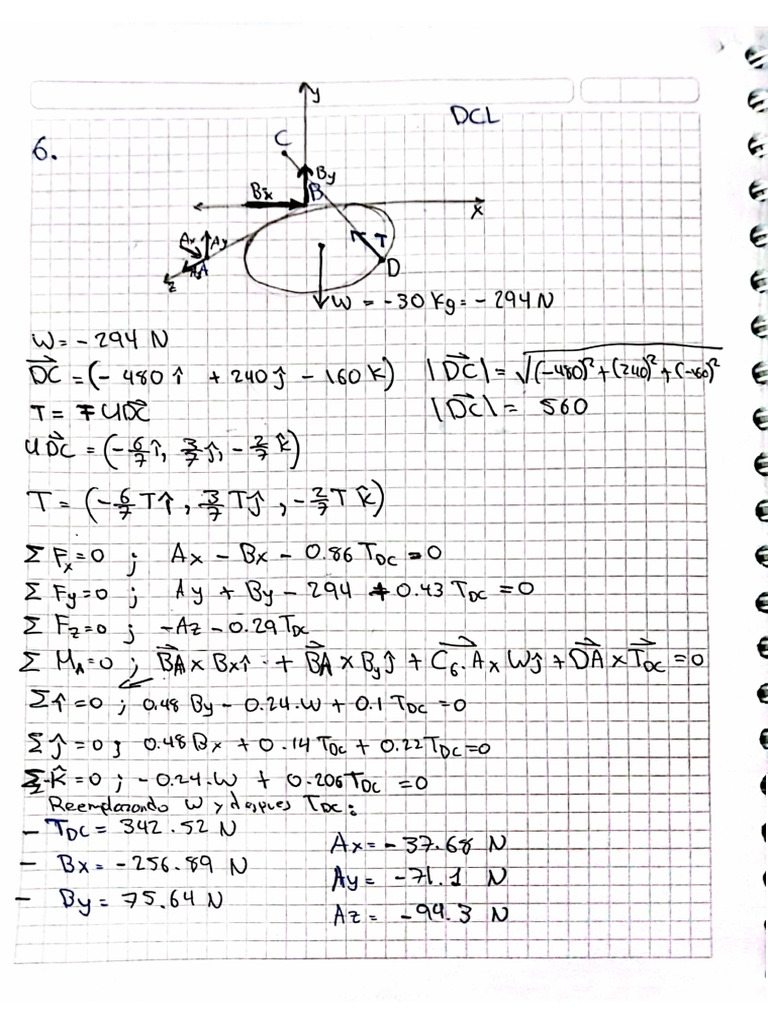 DCL
6.
y
C
By
Bx
B
x
Ax
Ay
Az
A
z
T
D
W = -30 Kg = -294 N
W = - 294 N
DC = (- 480 î + 240 ĵ - 160 K)
|DC| = √(-480)² + (240)² + (-160)²
T = T UDC
|DC| = 560
UDC = (-6/7 î, 3/7 ĵ, -2/7 k̂)
T = (-6/7 T î, 3/7 T ĵ, -2/7 T k̂)
Σ Fx = 0 ; Ax - Bx - 0.86 TDC = 0
Σ Fy = 0 ; Ay + By - 294 + 0.43 TDC = 0
Σ Fz = 0 ; -Az - 0.29 TDC
Σ MA = 0 ; BA x Bx î + BA x By ĵ + C6.A x W ĵ + DA x TDC = 0
Σ î = 0 ; 0.48 By - 0.24.W + 0.1 TDC = 0
Σ ĵ = 0 ; 0.48 Bx + 0.14 TDC + 0.22 TDC = 0
Σ K̂ = 0 ; - 0.24.W + 0.206 TDC = 0
Reemplazando W y despues TDC :
- TDC = 342.52 N
- Bx = -256.89 N
- By = 75.64 N
Ax = - 37.68 N
Ay = -71.1 N
Az = -94.3 N